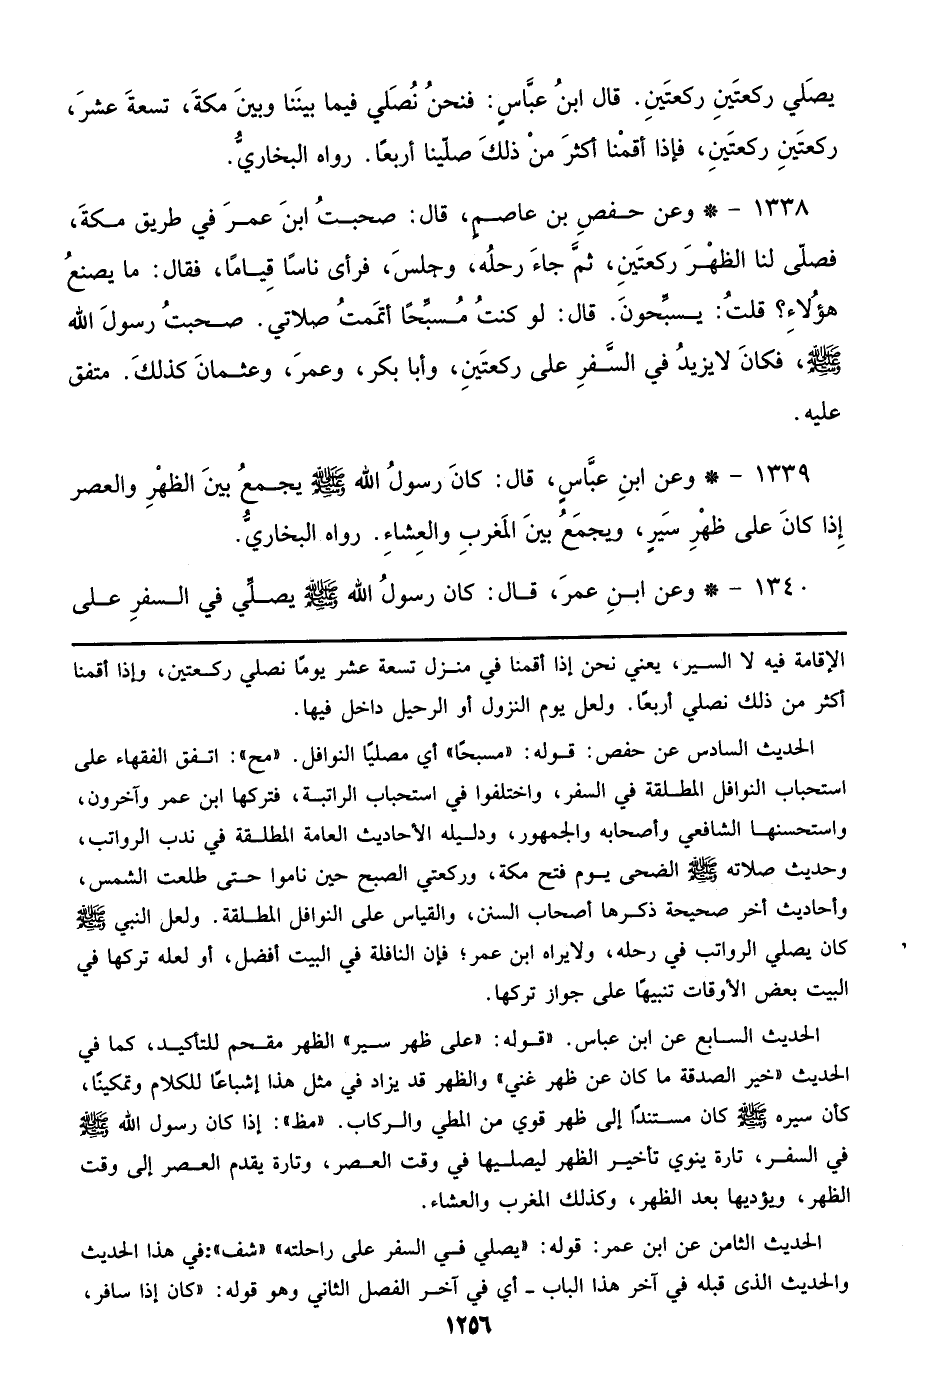 يصلي ركعتَينِ ركعتَينِ. قال ابنُ عبَّاسٍ: فنحنُ نُصَلي فيما بينَنا وبينَ مكةَ، تسعةَ عشرَ،
ركعتَينِ ركعتَينِ، فإذا أقمْنا أكثرَ منْ ذلكَ صلّينا أربعًا. رواه البخاريُّ.
١٣٣٨ - * وعن حفصِ بن عاصمٍ، قال: صحبتُ ابنَ عمرَ في طريق مكةَ،
فصلّى لنا الظهْرَ ركعتَينِ، ثمَّ جاءَ رحلُه، وجلسَ، فرأى ناسًا قيامًا، فقال: ما يصنعُ
هؤلاءِ؟ قلتُ: يسبِّحونَ. قال: لو كنتُ مُسبِّحًا أتمَمتُ صلاتي. صحبتُ رسولَ الله
ﷺ، فكانَ لايزيدُ في السَّفرِ على ركعتَينِ، وأبا بكر، وعمرَ، وعثمانَ كذلكَ. متفق
عليه.
١٣٣٩ - * وعن ابنِ عبَّاسٍ، قال: كانَ رسولُ الله ﷺ يجمعُ بينَ الظهْرِ والعصر
إذا كانَ على ظهْرِ سَيرٍ، ويجمَعُ بينَ المَغربِ والعِشاءِ. رواه البخاريُّ.
١٣٤٠ - * وعن ابنِ عمرَ، قال: كان رسولُ الله ﷺ يصلِّي في السفرِ على
الإقامة فيه لا السير، يعني نحن إذا أقمنا في منزل تسعة عشر يومًا نصلي ركعتين، وإذا أقمنا
أكثر من ذلك نصلي أربعًا. ولعل يوم النزول أو الرحيل داخل فيها.
الحديث السادس عن حفص: قوله: «مسبحًا» أي مصليًا النوافل. «مح»: اتفق الفقهاء على
استحباب النوافل المطلقة في السفر، واختلفوا في استحباب الراتبة، فتركها ابن عمر وآخرون،
واستحسنها الشافعي وأصحابه والجمهور، ودليله الأحاديث العامة المطلقة في ندب الرواتب،
وحديث صلاته ﷺ الضحى يوم فتح مكة، وركعتي الصبح حين ناموا حتى طلعت الشمس،
وأحاديث أخر صحيحة ذكرها أصحاب السنن، والقياس على النوافل المطلقة. ولعل النبي ﷺ
كان يصلي الرواتب في رحله، ولايراه ابن عمر؛ فإن النافلة في البيت أفضل، أو لعله تركها في
البيت بعض الأوقات تنبيهًا على جواز تركها.
الحديث السابع عن ابن عباس. «قوله: «على ظهر سير» الظهر مقحم للتأكيد، كما في
الحديث «خير الصدقة ما كان عن ظهر غني» والظهر قد يزاد في مثل هذا إشباعًا للكلام وتمكينًا،
كأن سيره ﷺ كان مستندًا إلى ظهر قوي من المطي والركاب. «مظ»: إذا كان رسول الله ﷺ
في السفر، تارة ينوي تأخير الظهر ليصليها في وقت العصر، وتارة يقدم العصر إلى وقت
الظهر، ويؤديها بعد الظهر، وكذلك المغرب والعشاء.
الحديث الثامن عن ابن عمر: قوله: «يصلي في السفر على راحلته» «شف»:في هذا الحديث
والحديث الذى قبله في آخر هذا الباب ـ أي في آخر الفصل الثاني وهو قوله: «كان إذا سافر،
١٢٥٦